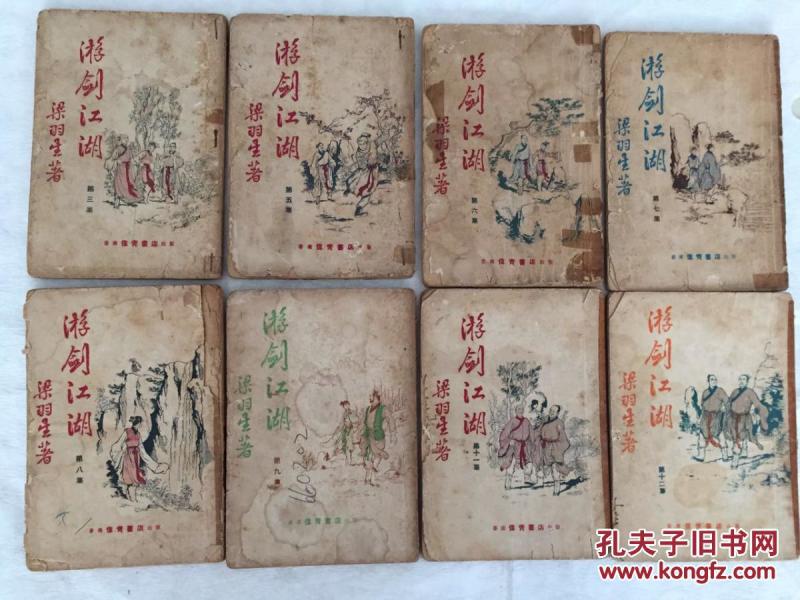 游劍江湖
梁羽生著
第三集
香港偉青書店出版
游劍江湖
梁羽生著
第五集
香港偉青書店出版
游劍江湖
梁羽生著
第六集
香港偉青書店出版
游劍江湖
梁羽生著
第七集
香港偉青書店出版
游劍江湖
梁羽生著
第八集
香港偉青書店出版
游劍江湖
梁羽生著
第九集
160202
香港偉青書店出版
游劍江湖
梁羽生著
第十一集
香港偉青書店出版
游劍江湖
梁羽生著
第十二集
孔夫子旧书网
www.kongfz.com